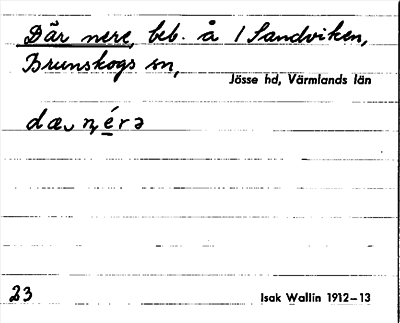 Där nere, beb. å 1 Sandviken,
Brunskogs sn,
Jösse hd, Värmlands län
dæ◡ ṇérə
23
Isak Wallin 1912–13